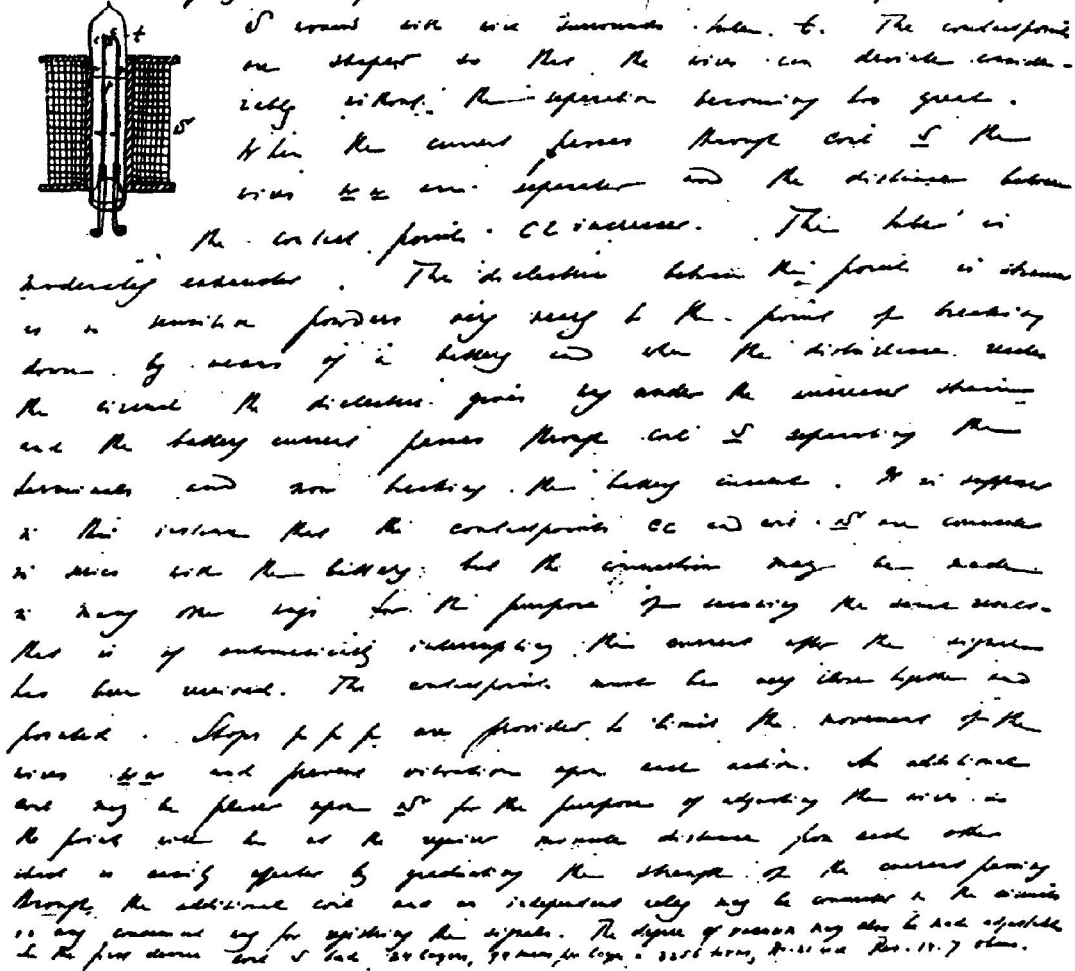 S wound with wire surrounds tube t. The contactpoints
are shaped so that the wires can deviate consider-
ably without the separation becoming too great.
When the current passes through coil S the
wires w w are separated and the distance between
the contact points cc increases. The tube is
moderately exhausted. The dielectric between the points is strained
as in sensitive powders very nearly to the point of breaking
down by means of a battery and when the disturbance reaches
the circuit the dielectric gives way under the increased strain
and the battery current passes through coil S separating the
terminals and now breaking the battery current. It is supposed
in this instance that the contactpoints cc and coil S are connected
in series with the battery but the connection may be made
in many other ways for the purpose of securing the same result
that is of automatically interrupting the current after the signal
has been received. The contactpoints must be very close together and
pointed. Stops p p p are provided to limit the movement of the
wires w w and prevent vibration upon each action. An additional
coil may be placed upon S for the purpose of adjusting the wires so
the points will be at the required minute distance from each other
which is easily effected by graduating the strength of the current passing
through the additional coil and an independent relay may be connected in the circuits
in any convenient way for registering the signals. The degree of vacuum may also be made adjustable
In the first device coil S had 24 layers, 94 turns per layer = 2256 turns, Res. 14.7 ohms.
t
S